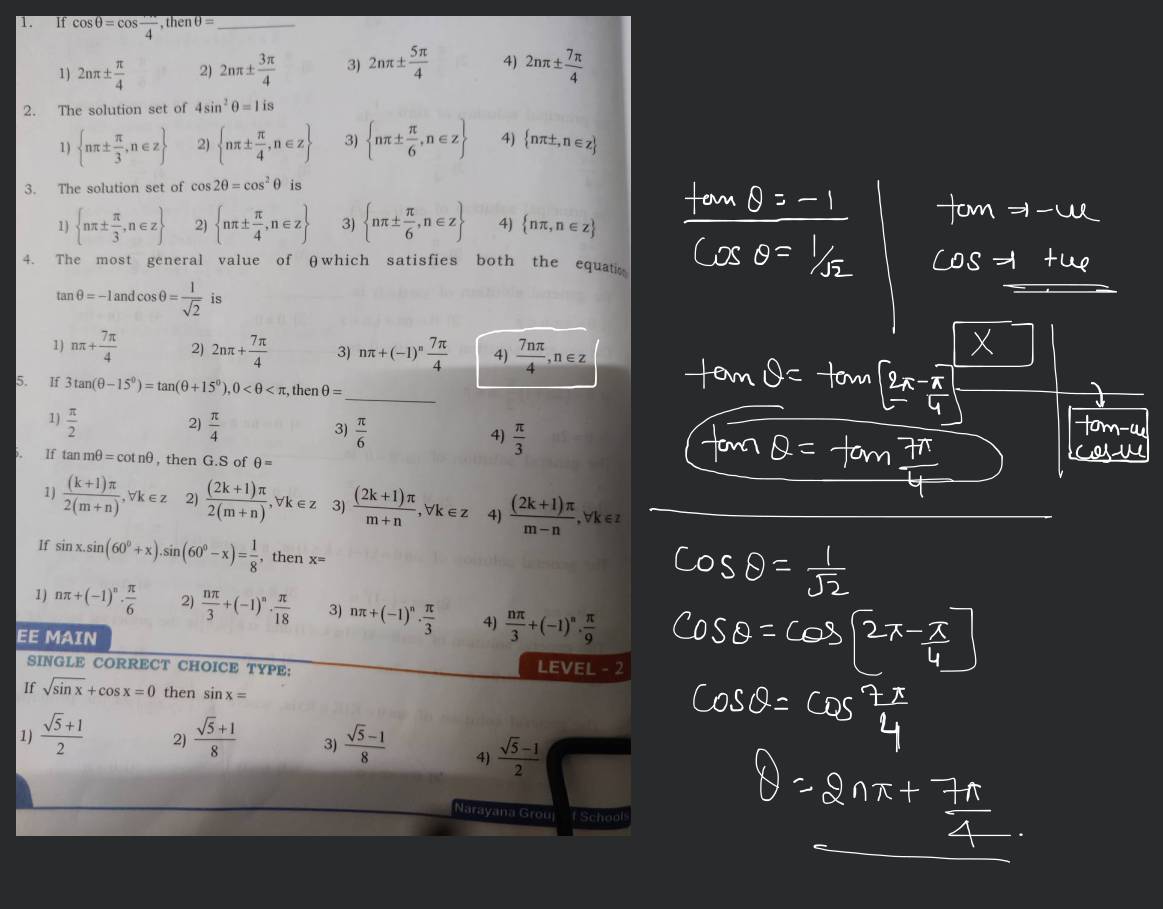 1. If cosθ = cos π/4, then θ = ________
1) 2nπ ± π/4 2) 2nπ ± 3π/4 3) 2nπ ± 5π/4 4) 2nπ ± 7π/4
2. The solution set of 4sin²θ = 1 is
1) {nπ ± π/3, n ∈ z} 2) {nπ ± π/4, n ∈ z} 3) {nπ ± π/6, n ∈ z} 4) {nπ±, n ∈ z}
3. The solution set of cos2θ = cos²θ is
1) {nπ ± π/3, n ∈ z} 2) {nπ ± π/4, n ∈ z} 3) {nπ ± π/6, n ∈ z} 4) {nπ, n ∈ z}
4. The most general value of θ which satisfies both the equation
tanθ = −1 and cosθ = 1/√2 is
1) nπ + 7π/4 2) 2nπ + 7π/4 3) nπ + (−1)ⁿ 7π/4 4) 7nπ/4, n ∈ z
5. If 3tan(θ−15⁰) = tan(θ+15⁰), 0 < θ < π, then θ = ________
1) π/2 2) π/4 3) π/6 4) π/3
If tan mθ = cot nθ, then G.S of θ =
1) (k+1)π/2(m+n), ∀k ∈ z 2) (2k+1)π/2(m+n), ∀k ∈ z 3) (2k+1)π/m+n, ∀k ∈ z 4) (2k+1)π/m−n, ∀k ∈ z
If sin x.sin(60⁰+x).sin(60⁰−x) = 1/8, then x=
1) nπ + (−1)ⁿ.π/6 2) nπ/3 + (−1)ⁿ.π/18 3) nπ + (−1)ⁿ.π/3 4) nπ/3 + (−1)ⁿ.π/9
EE MAIN
LEVEL - 2
SINGLE CORRECT CHOICE TYPE:
If √sin x + cos x = 0 then sin x =
1) √5+1/2 2) √5+1/8 3) √5−1/8 4) √5−1/2
Narayana Group of Schools
tan θ = −1
cos θ = 1/√2
tan → −ve
cos → +ve
X
tan θ = tan [2π − π/4]
tan θ = tan 7π/4
tan −ve
cos −ve
cos θ = 1/√2
cos θ = cos [2π − π/4]
cos θ = cos 7π/4
θ = 2nπ + 7π/4.